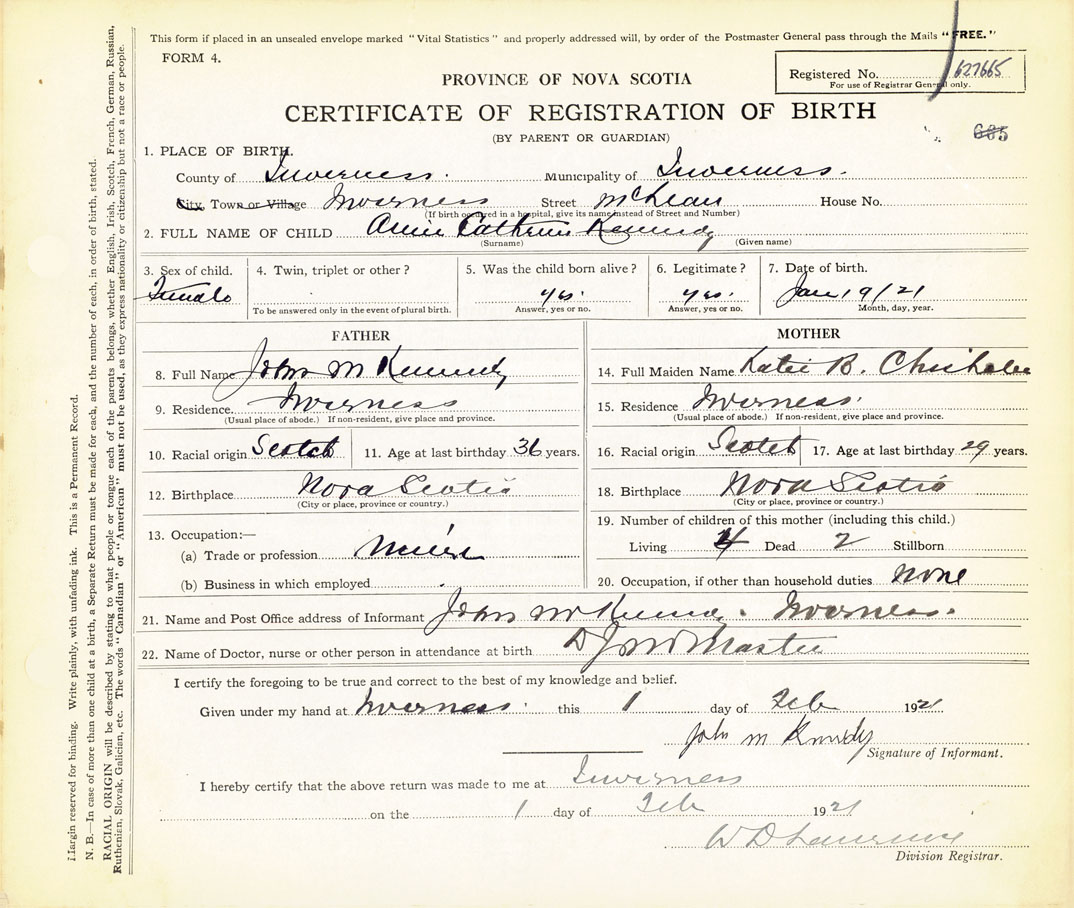 This form if placed in an unsealed envelope marked "Vital Statistics" and properly addressed will, by order of the Postmaster General pass through the Mails "FREE."
FORM 4.
Registered No. 627665
For use of Registrar General only.
PROVINCE OF NOVA SCOTIA
CERTIFICATE OF REGISTRATION OF BIRTH
685
(BY PARENT OR GUARDIAN)
1. PLACE OF BIRTH.
County of Inverness. Municipality of Inverness.
City, Town or Village Inverness Street McLean House No.
(If birth occurred in a hospital, give its name instead of Street and Number)
2. FULL NAME OF CHILD Annie Catherine Kennedy
(Surname) (Given name)
3. Sex of child. 4. Twin, triplet or other? 5. Was the child born alive? 6. Legitimate? 7. Date of birth.
Female yes. yes. Jan 19/21
To be answered only in the event of plural birth. Answer, yes or no. Answer, yes or no. Month, day, year.
FATHER
8. Full Name John M Kennedy
9. Residence. Inverness
(Usual place of abode.) If non-resident, give place and province.
10. Racial origin Scotch 11. Age at last birthday 36 years.
12. Birthplace Nova Scotia
(City or place, province or country.)
13. Occupation:—
(a) Trade or profession Miner
(b) Business in which employed
MOTHER
14. Full Maiden Name Katie B. Chisholm
15. Residence Inverness.
(Usual place of abode.) If non-resident, give place and province.
16. Racial origin Scotch 17. Age at last birthday 29 years.
18. Birthplace Nova Scotia
(City or place, province or country.)
19. Number of children of this mother (including this child.)
Living 4 Dead 2 Stillborn
20. Occupation, if other than household duties None
21. Name and Post Office address of Informant John M Kennedy. Inverness.
22. Name of Doctor, nurse or other person in attendance at birth
I certify the foregoing to be true and correct to the best of my knowledge and belief.
Given under my hand at Inverness. this 1 day of Feb 1921
John M Kennedy
Signature of Informant.
I hereby certify that the above return was made to me at Inverness
on the 1 day of Feb 1921
W D Lawrence
Division Registrar.
Margin reserved for binding. Write plainly, with unfading ink. This is a Permanent Record.
N. B.—In case of more than one child at a birth, a Separate Return must be made for each, and the number of each, in order of birth, stated.
RACIAL ORIGIN will be described by stating to what people or tongue each of the parents belongs, whether English, Irish, Scotch, French, German, Russian,
Ruthenian, Slovak, Galician, etc. The words "Canadian" or "American" must not be used, as they express nationality or citizenship but not a race or people.